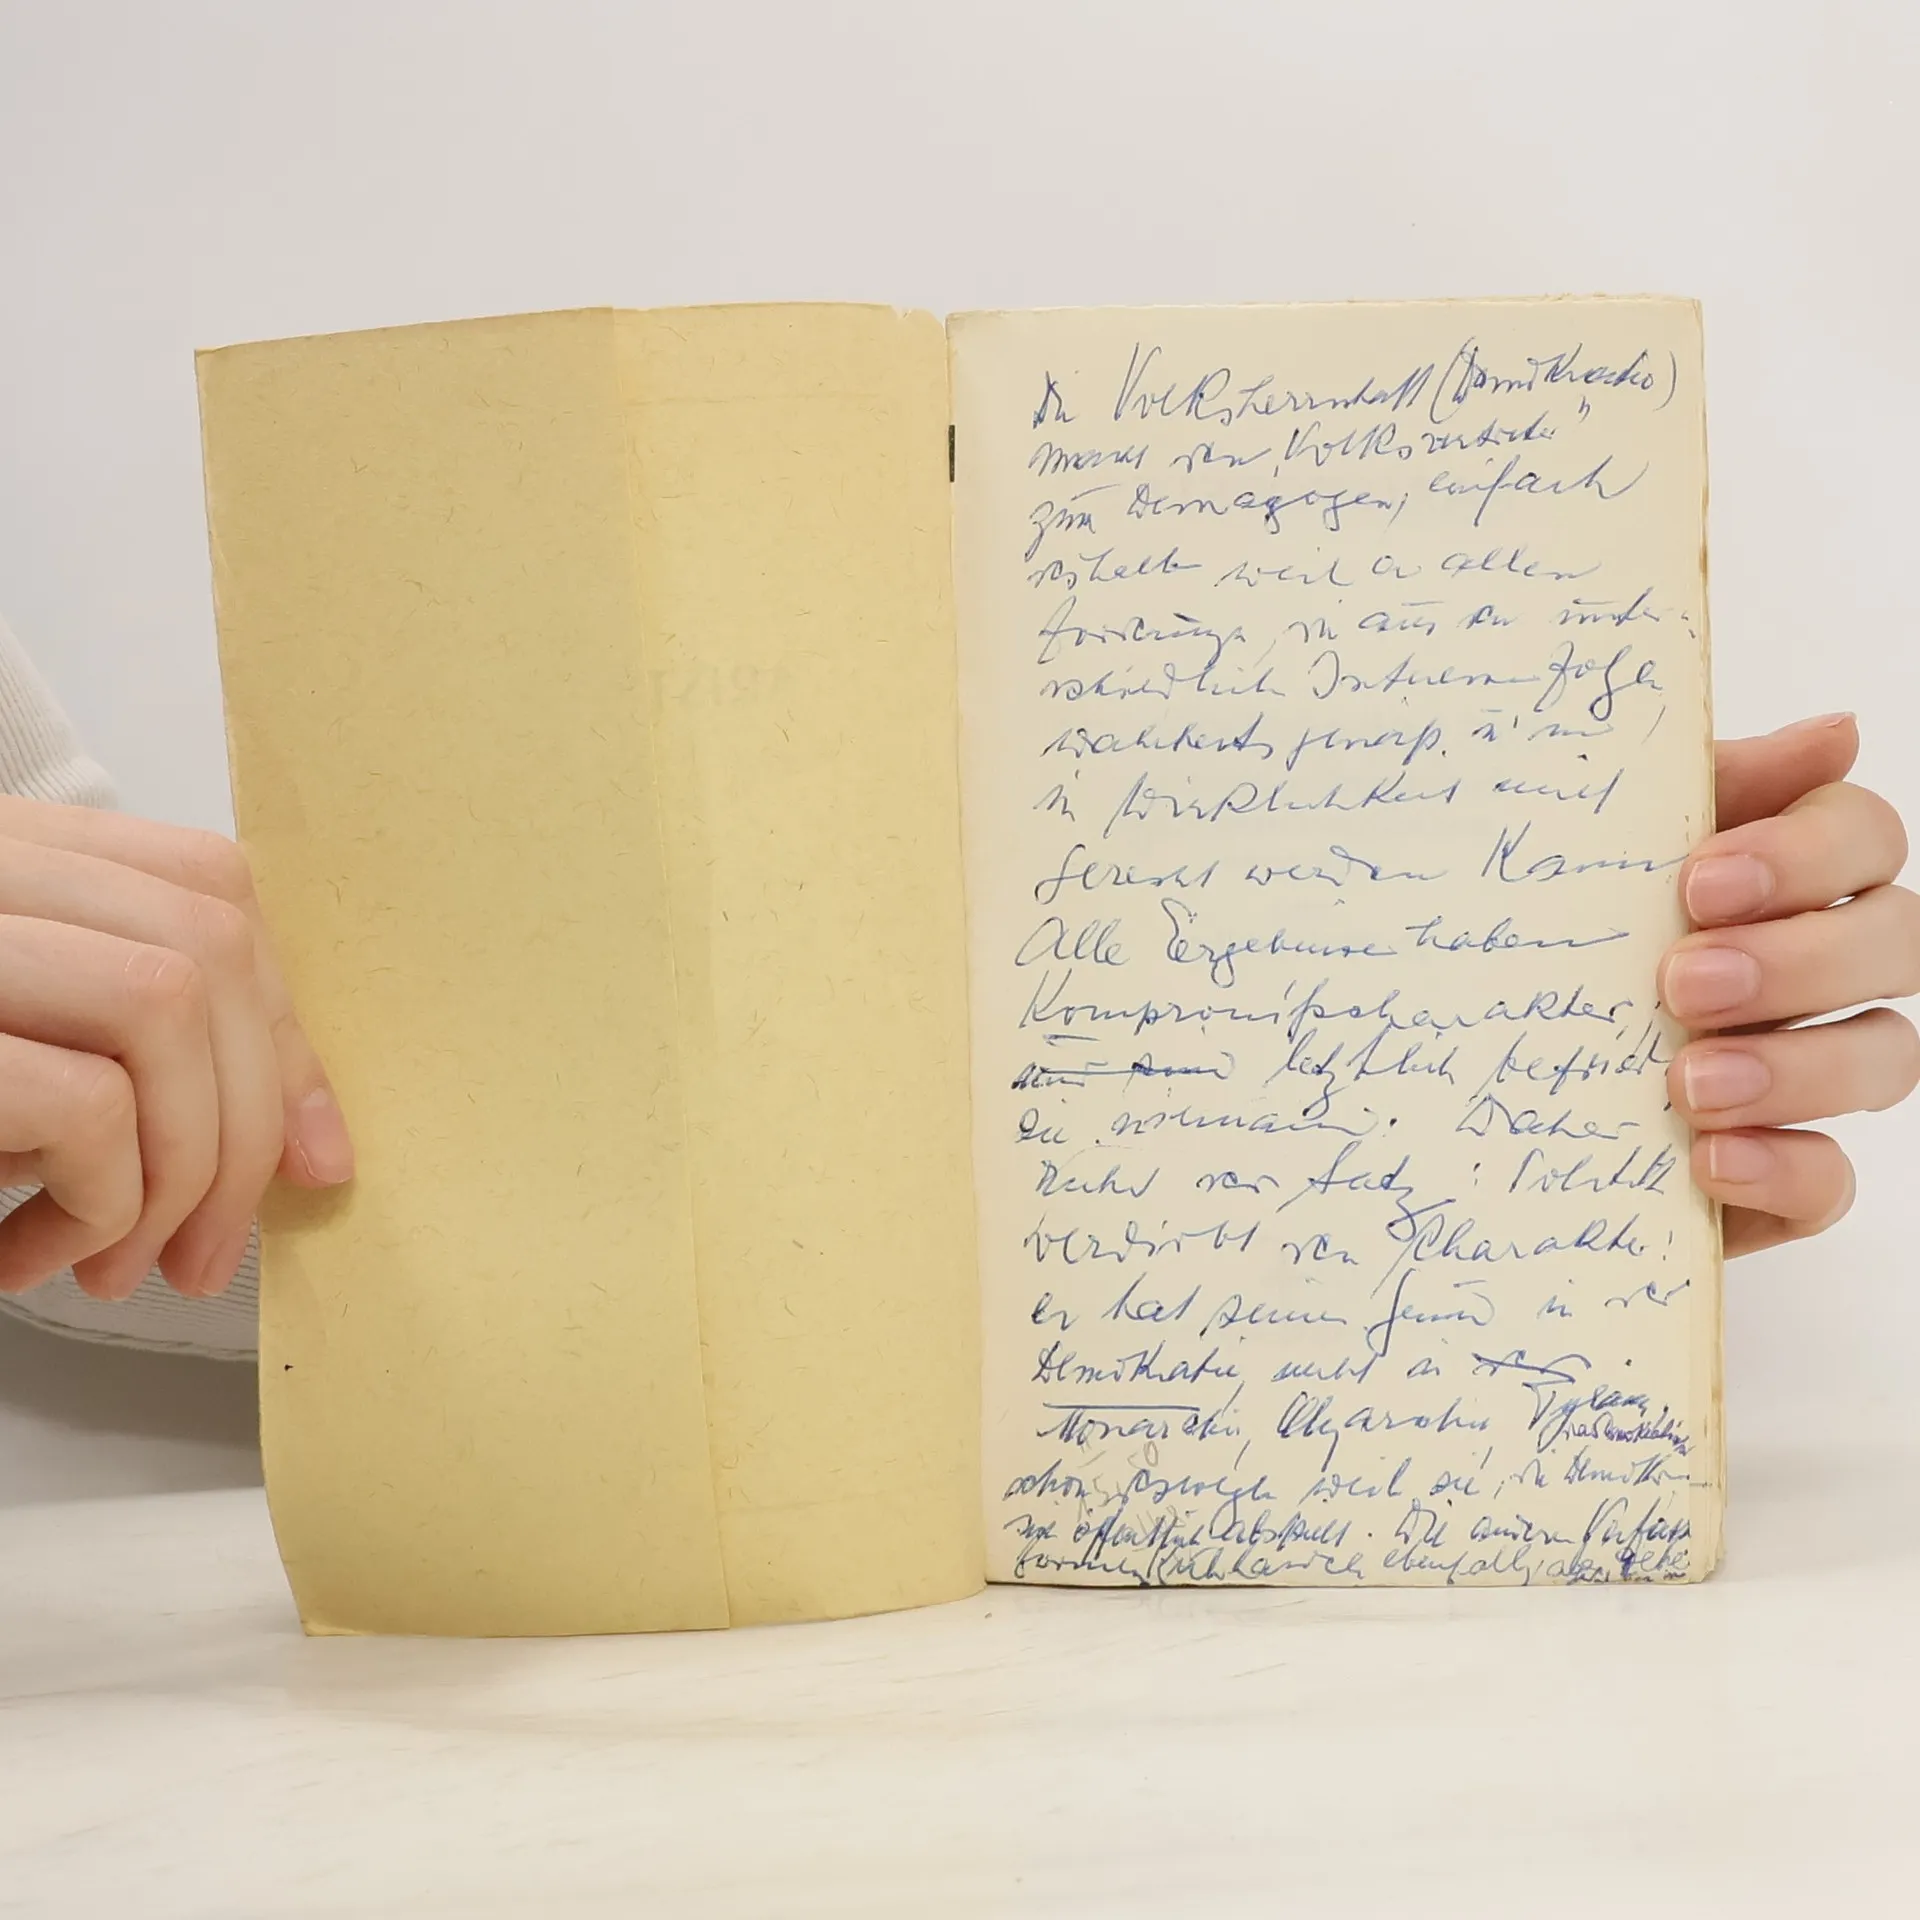 Die Volksherrschaft (Demokratie)
macht den "Volksvertreter"
zum Demagogen; einfach
deshalb weil er allen
Forderungen, die aus den unter-
schiedlichen Interessen folgen,
wahrheitsgemäß u'
in Wirklichkeit nicht
gerecht werden kann
Alle Ergebnisse haben
Kompromißcharakter;
letztlich befriedi
sie niemand. Daher
der Satz: Politik
verdirbt den Charakter:
er hat seinen Grund in der
Demokratie, nicht in der
Monarchie, Oligarchie,
schon deswegen weil sie, die Demokratie
öffentlich abspielt. Die anderen
formen ebenfalls,